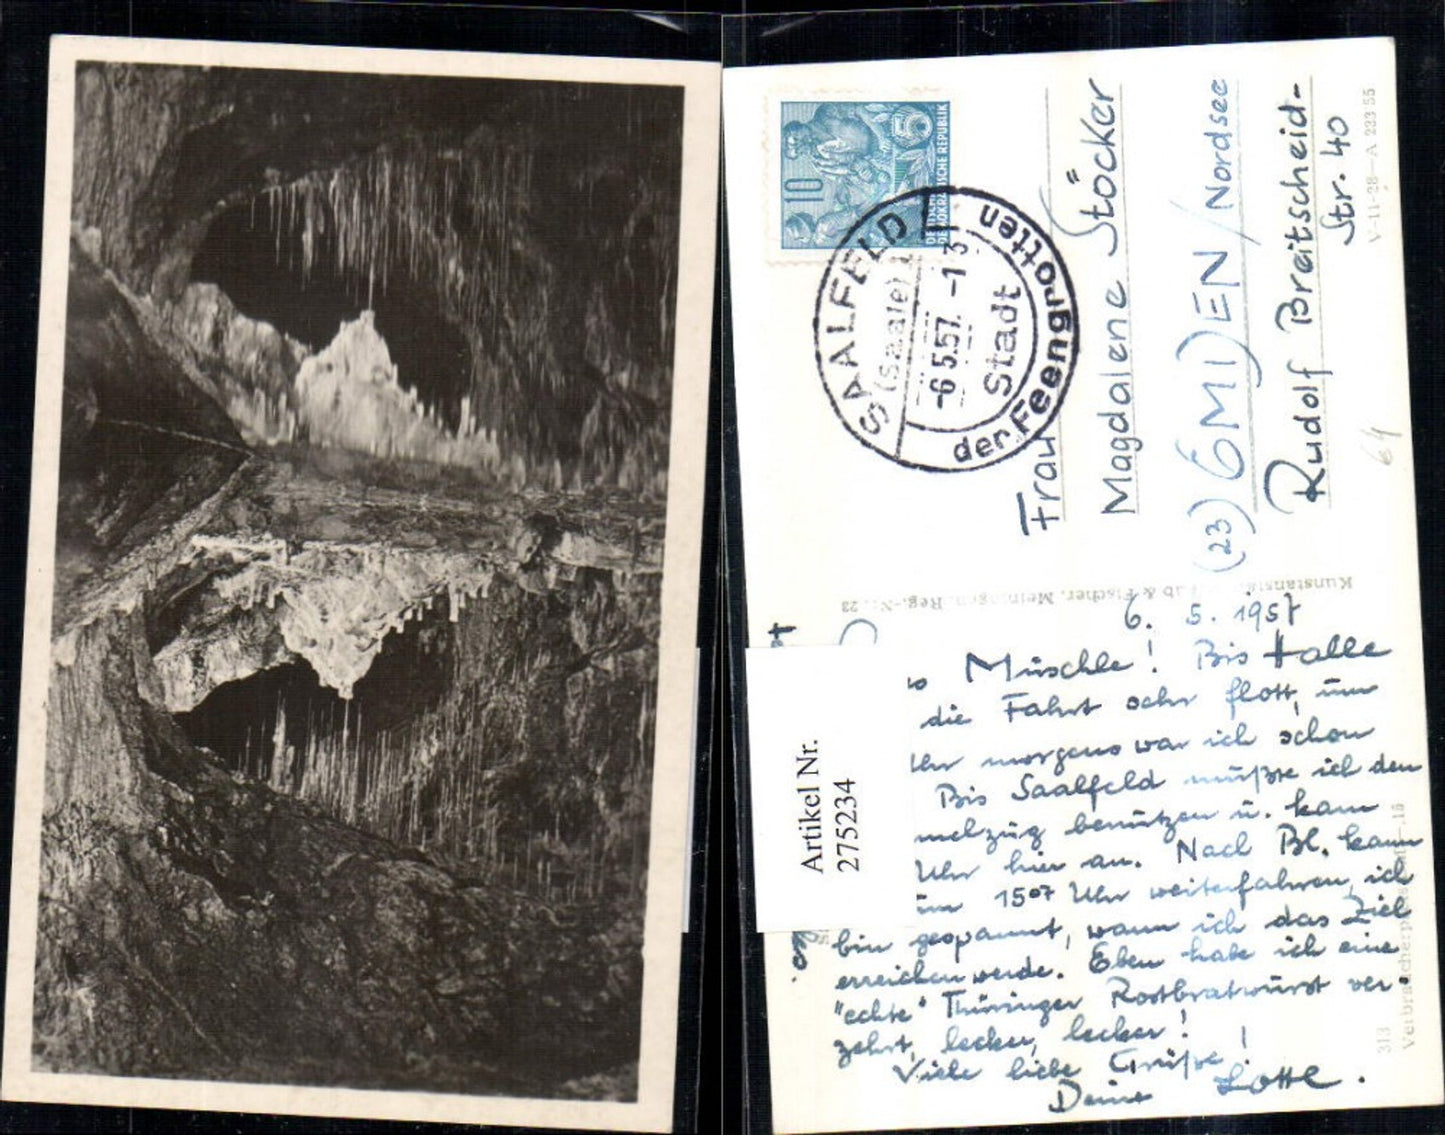 10
5
DEUTSCHE
DEMOKRATISCHE REPUBLIK
SAALFELD
(Saale) 1
-6.5.57.-13
Stadt
der Feengrotten
Frau
Magdalene Stöcker
(23) EMDEN/Nordsee
Rudolf Breitscheid-
Str. 40
V-11-28-A 233 55
64
Kunstanstalt & Fischer, Meiningen, Reg.-Nr. 23
6. 5. 1957
Müschle! Bis Halle
die Fahrt sehr flott, um
Uhr morgens war ich schon
Bis Saalfeld mußte ich den
benutzen u. kam
Uhr hier an. Nach Bl. kann
im 15⁰⁷ Uhr weiterfahren, ich
bin gespannt, wann ich das Ziel
erreichen werde. Eben habe ich eine
"echte" Thüringer Rostbratwurst ver-
zehrt, lecker, lecker!
Viele liebe Grüße!
Deine Lotte.
Artikel Nr.
275234
313